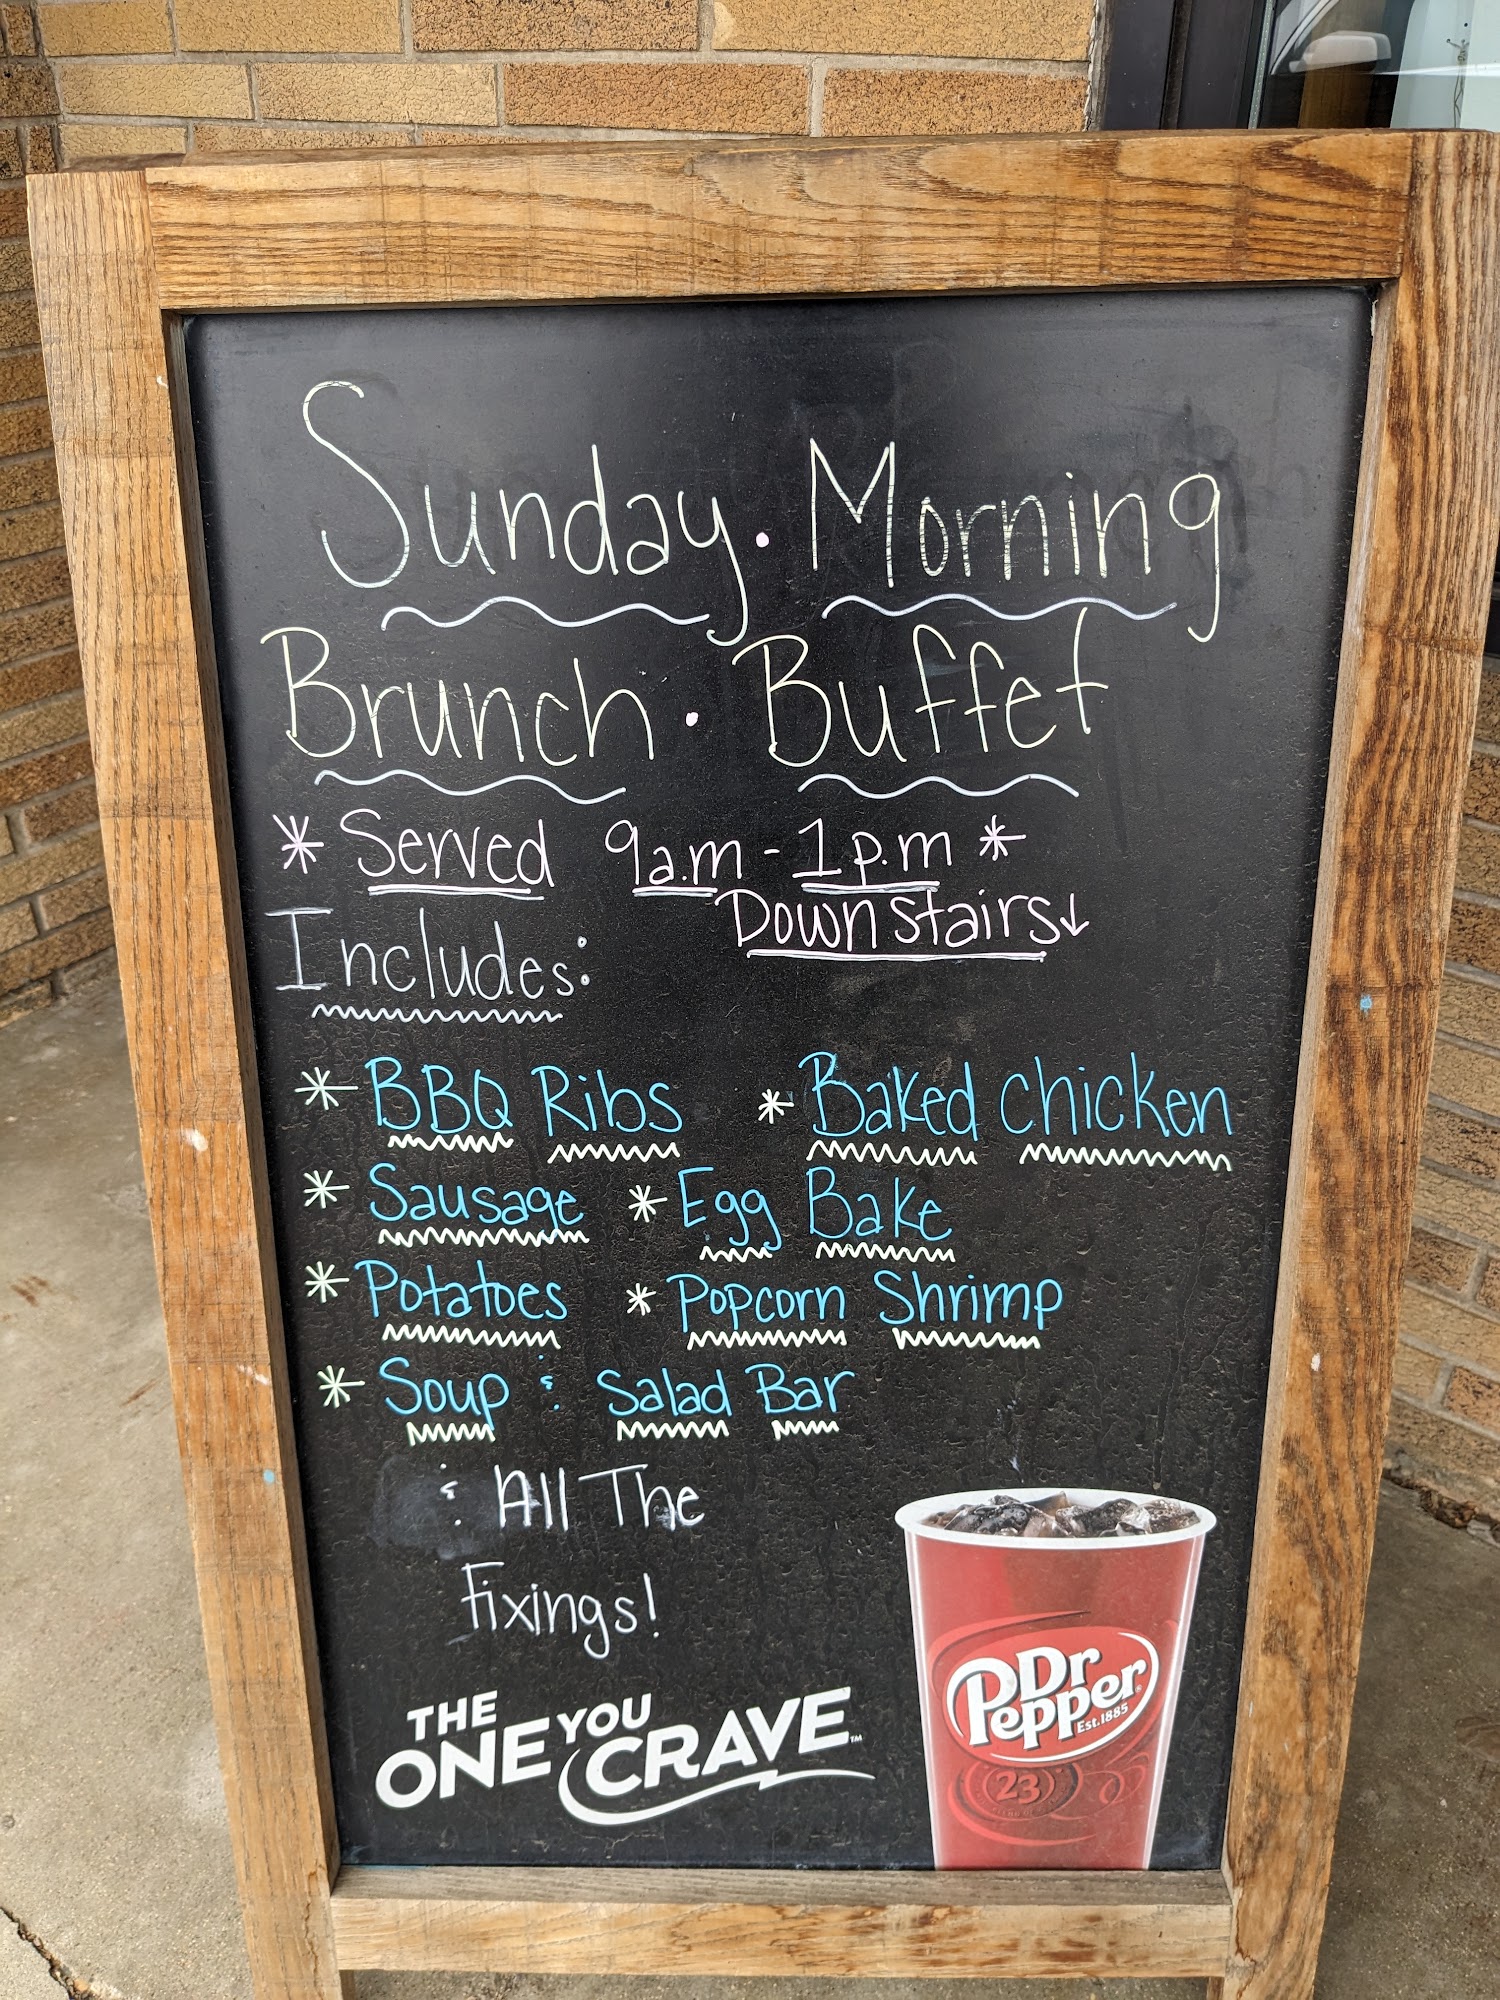 Sunday · Morning
Brunch · Buffet
* Served 9a.m - 1p.m *
Downstairs↓
Includes:
* BBQ Ribs * Baked Chicken
* Sausage * Egg Bake
* Potatoes * Popcorn Shrimp
* Soup & Salad Bar
& All The
Fixings!
THE ONE YOU CRAVE™
Dr Pepper®
Est.1885
23